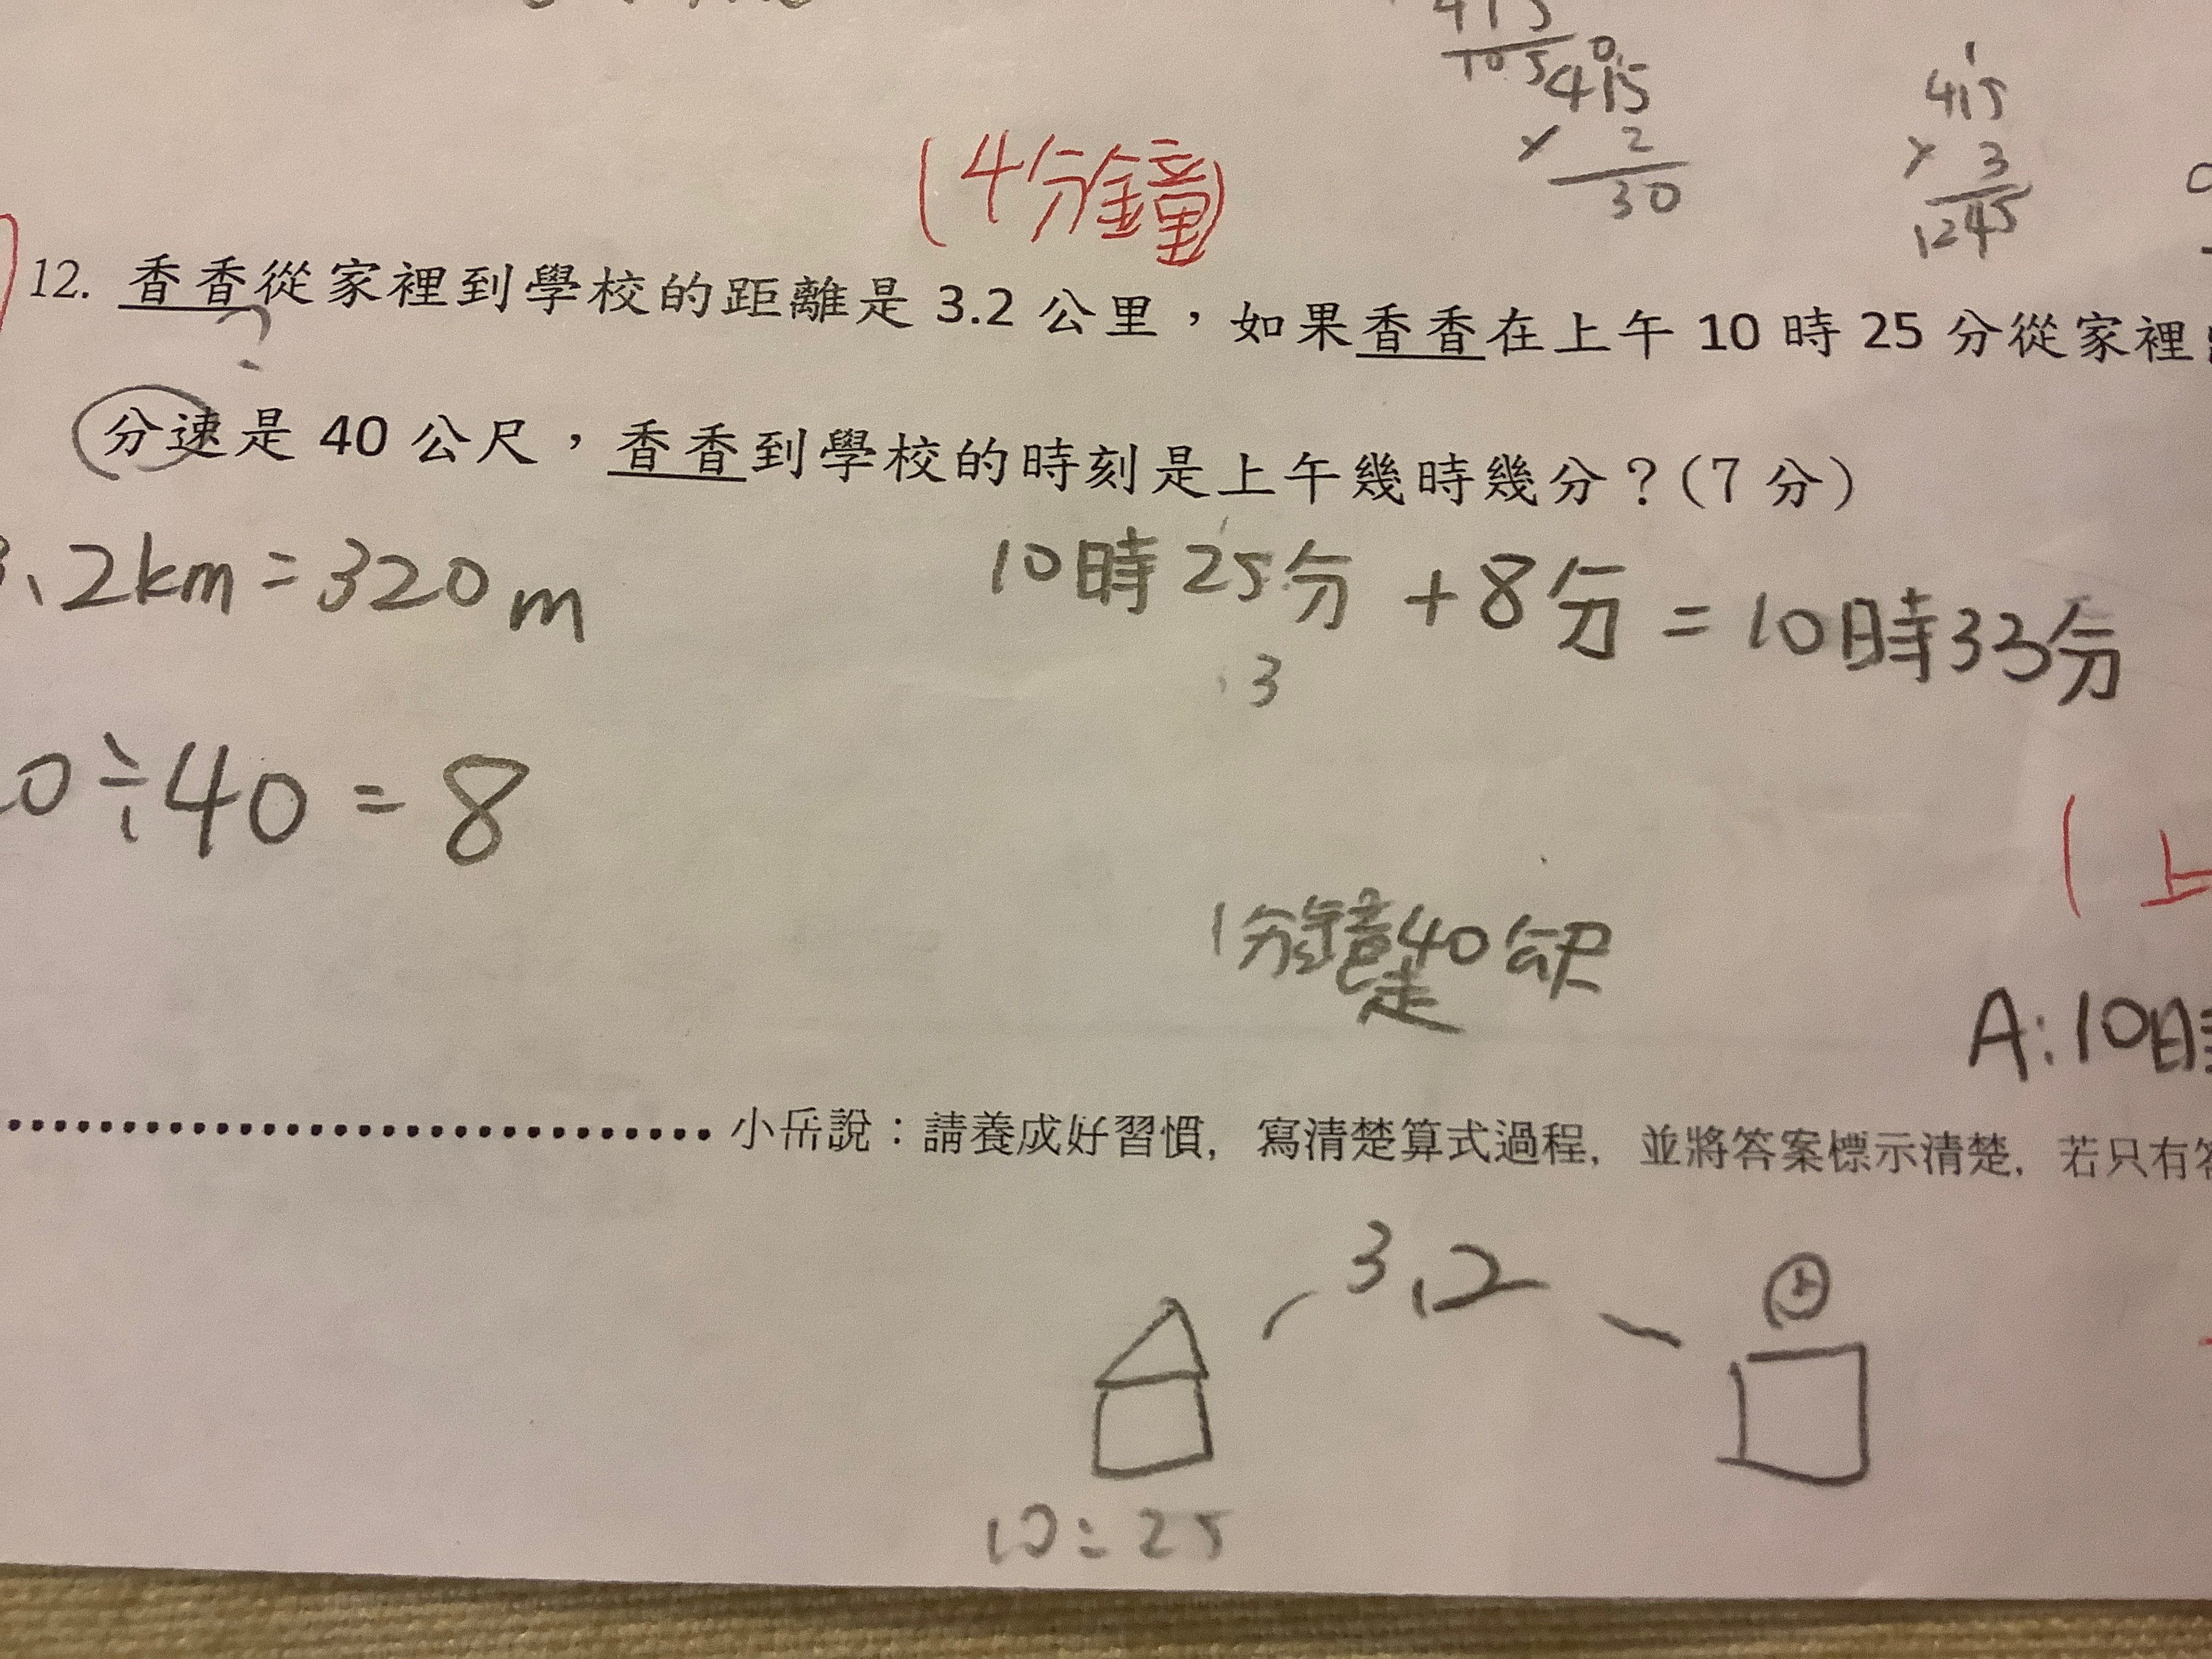 415
105
415
× 2
30
1
415
× 3
1245
(4分鐘)
12. 香香從家裡到學校的距離是 3.2 公里，如果香香在上午 10 時 25 分從家裡
?
分速是 40 公尺，香香到學校的時刻是上午幾時幾分？(7 分)
3.2km=320m
10時25分+8分=10時33分
3
0÷40=8
(上
1分鐘走40公尺
A:10時
小岳說：請養成好習慣，寫清楚算式過程，並將答案標示清楚，若只有答
3.2
10:25